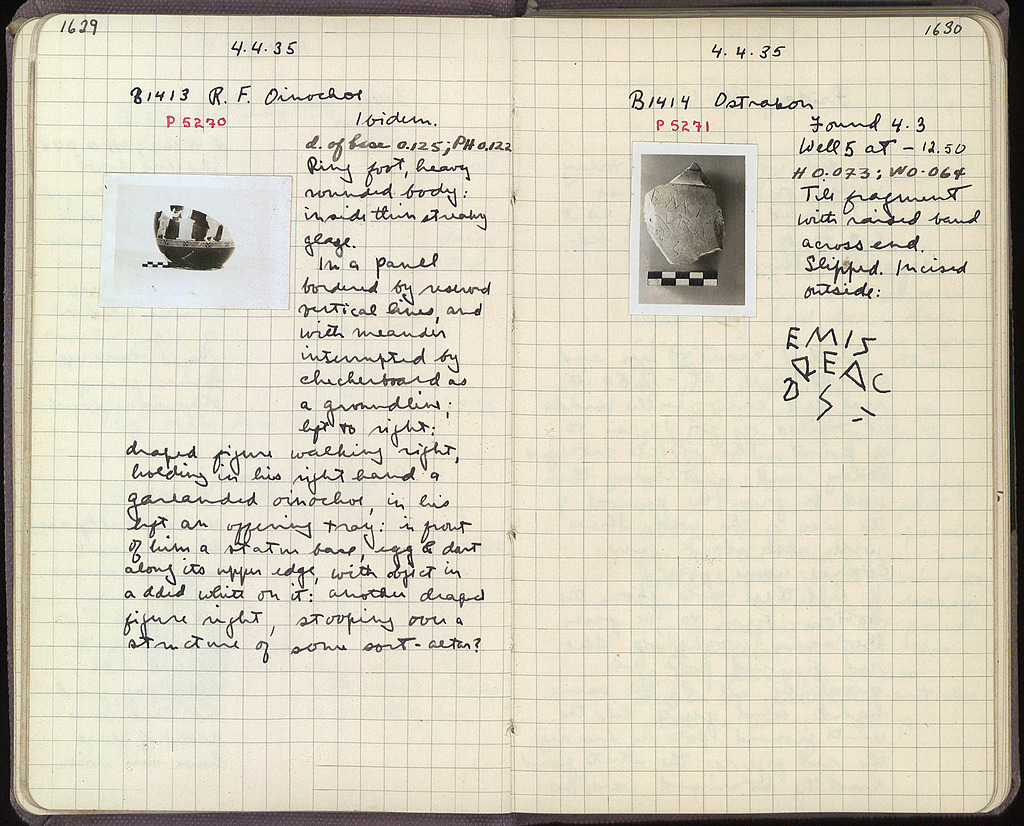 1629
4.4.35
B1413 R. F. Oinochoe
P 5270
Ibidem.
d. of base 0.125; PH 0.122
Ring foot, heavy
rounded body:
inside thin streaky
glaze.
In a panel
bordered by reserved
vertical lines, and
with meander
interrupted by
checkerboard as
a groundline;
left to right:
draped figure walking right,
holding in his right hand a
garlanded oinochoe, in his
left an offering tray: in front
of him a statue base, egg & dart
along its upper edge, with object in
added white on it: another draped
figure right, stooping over a
structure of some sort - altar?
1630
4.4.35
B1414 Ostrakon
P 5271
Found 4.3
Well 5 at - 12.50
H 0.073; W 0.064
Tile fragment
with raised band
across end.
Slipped. Incised
outside: